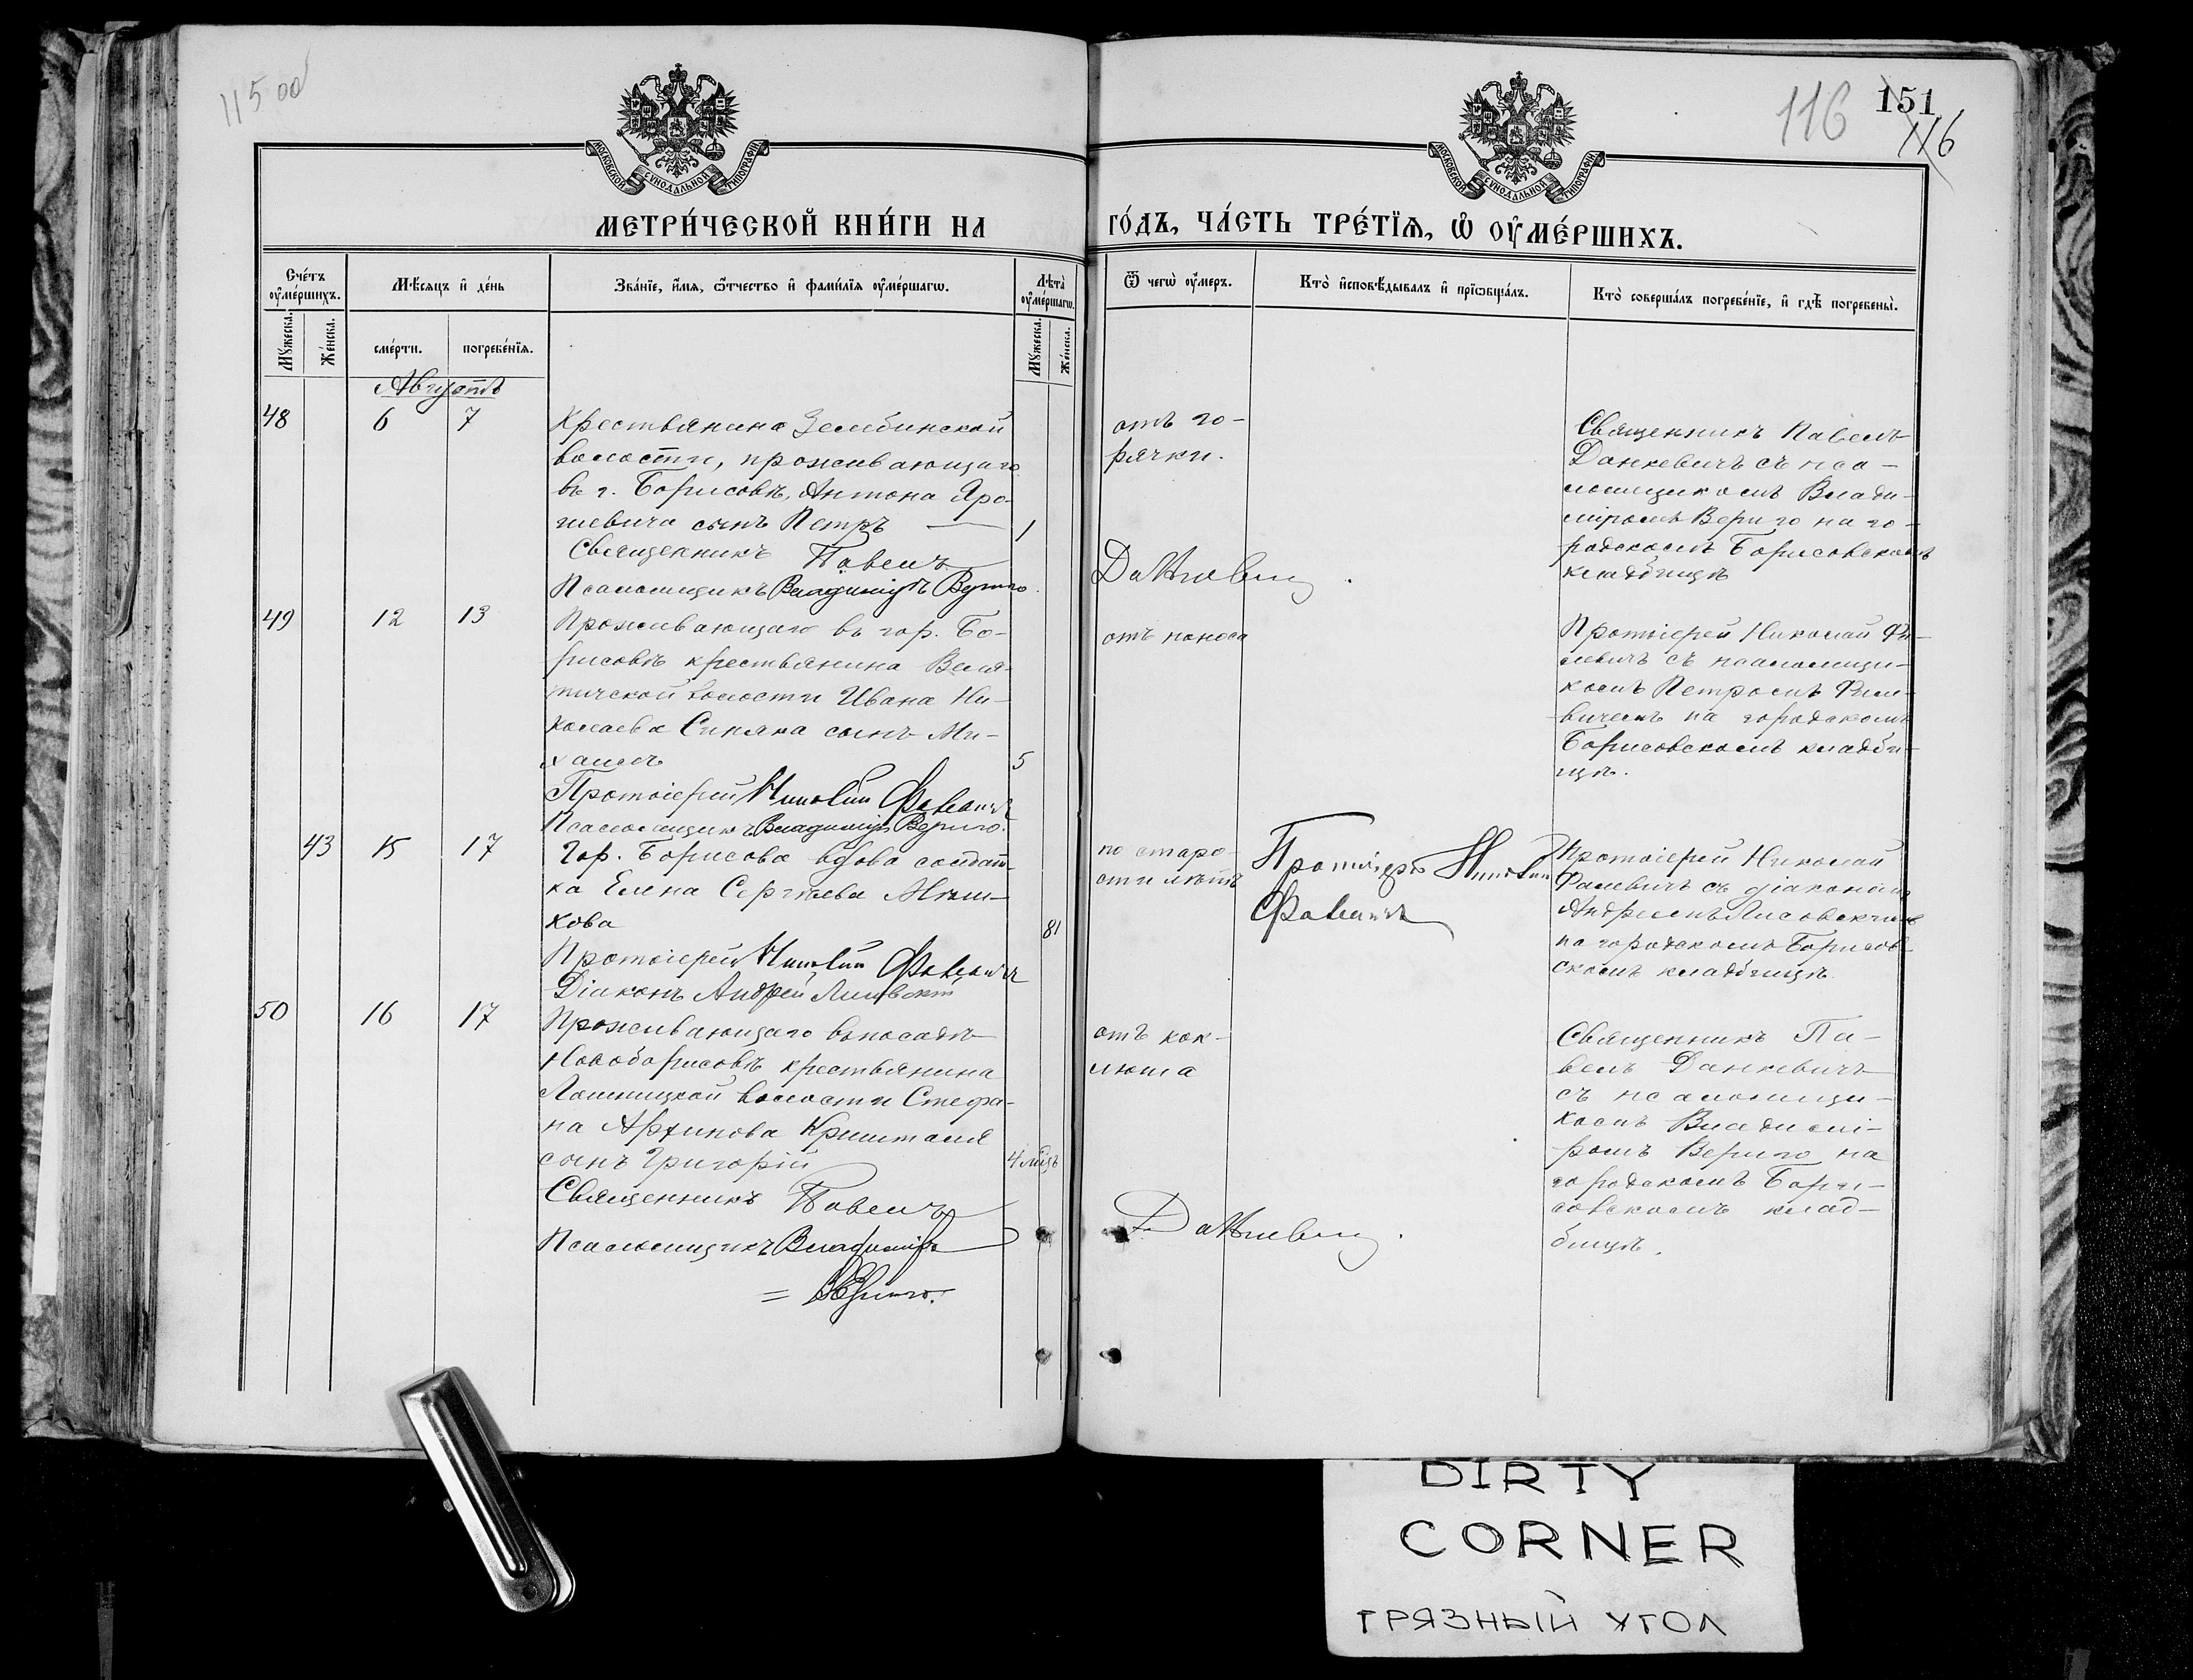 115 об
116
151
116
МОСКОВСКОЙ СѴНОДАЛЬНОЙ ТИПОГРАФІИ
МОСКОВСКОЙ СѴНОДАЛЬНОЙ ТИПОГРАФІИ
МЕТРИ́ЧЕСКОЙ КНИ́ГИ НА
ГО́ДЪ, ЧА́СТЬ ТРЕ́ТЇѦ, Ѡ҆ ОУ҆МЕ́РШИХЪ.
Сче́тъ оу҆ме́ршихъ.
Мѣ́сяцъ и҆ де́нь
Зва́нїе, и҆́мя, ѻ҆́тчество и҆ фами́лїя оу҆ме́ршагѡ.
Лѣ́та оу҆ме́ршагѡ.
Ѿ чегѡ̀ оу҆́меръ.
Кто̀ и҆сповѣ́дывалъ и҆ прїѡбща́лъ.
Кто̀ соверша́лъ погребе́нїе, и҆ гдѣ̀ погребены̀.
Му́жеска.
Же́нска.
сме́рти.
погребе́нїя.
Му́жеска.
Же́нска.
Августъ
48 6 7
Крестьянина Зембинской
волости, проживающаго
въ г. Борисовѣ, Антона Яро-
шевича сынъ Петръ — 1
Священникъ Павелъ
Псаломщикъ Владиміръ Вериго.
отъ го-
рячки.
Данкевичъ.
Священникъ Павелъ
Данкевичъ съ пса-
ломщикомъ Влади-
міромъ Вериго на го-
родскомъ Борисовскомъ
кладбищѣ
49 12 13
Проживающаго въ гор. Бо-
рисовѣ крестьянина Веля-
тичской волости Ивана Ни-
колаева Синяка сынъ Ми-
хаилъ 5
Протоіерей Николай
Псаломщикъ Владиміръ Вериго.
отъ поноса
Протоіерей Николай
съ псаломщи-
комъ Петромъ
вичемъ на городскомъ
Борисовскомъ кладби-
щѣ.
43 15 17
Гор. Борисова вдова солдат-
ка Елена Сергѣева
кова 81
Протоіерей Николай
Діаконъ Андрей Лисовскій
по старо-
сти лѣтъ
Протоіерей Николай
Протоіерей Николай
съ діакономъ
Андреемъ Лисовскимъ
на городскомъ Борисов-
скомъ кладбищѣ.
50 16 17
Проживающаго въ посадѣ
Новоборисовѣ крестьянина
Лошницкой волости Стефа-
на
сынъ Григорій 4 мѣс.
Священникъ Павелъ
Псаломщикъ Владиміръ
= Вериго.
отъ кок-
люша
Данкевичъ.
Священникъ Па-
велъ Данкевичъ
съ псаломщи-
комъ Владимі-
ромъ Вериго на
городскомъ Бори-
совскомъ клад-
бищѣ.
DIRTY
CORNER
ГРЯЗНЫЙ УГОЛ